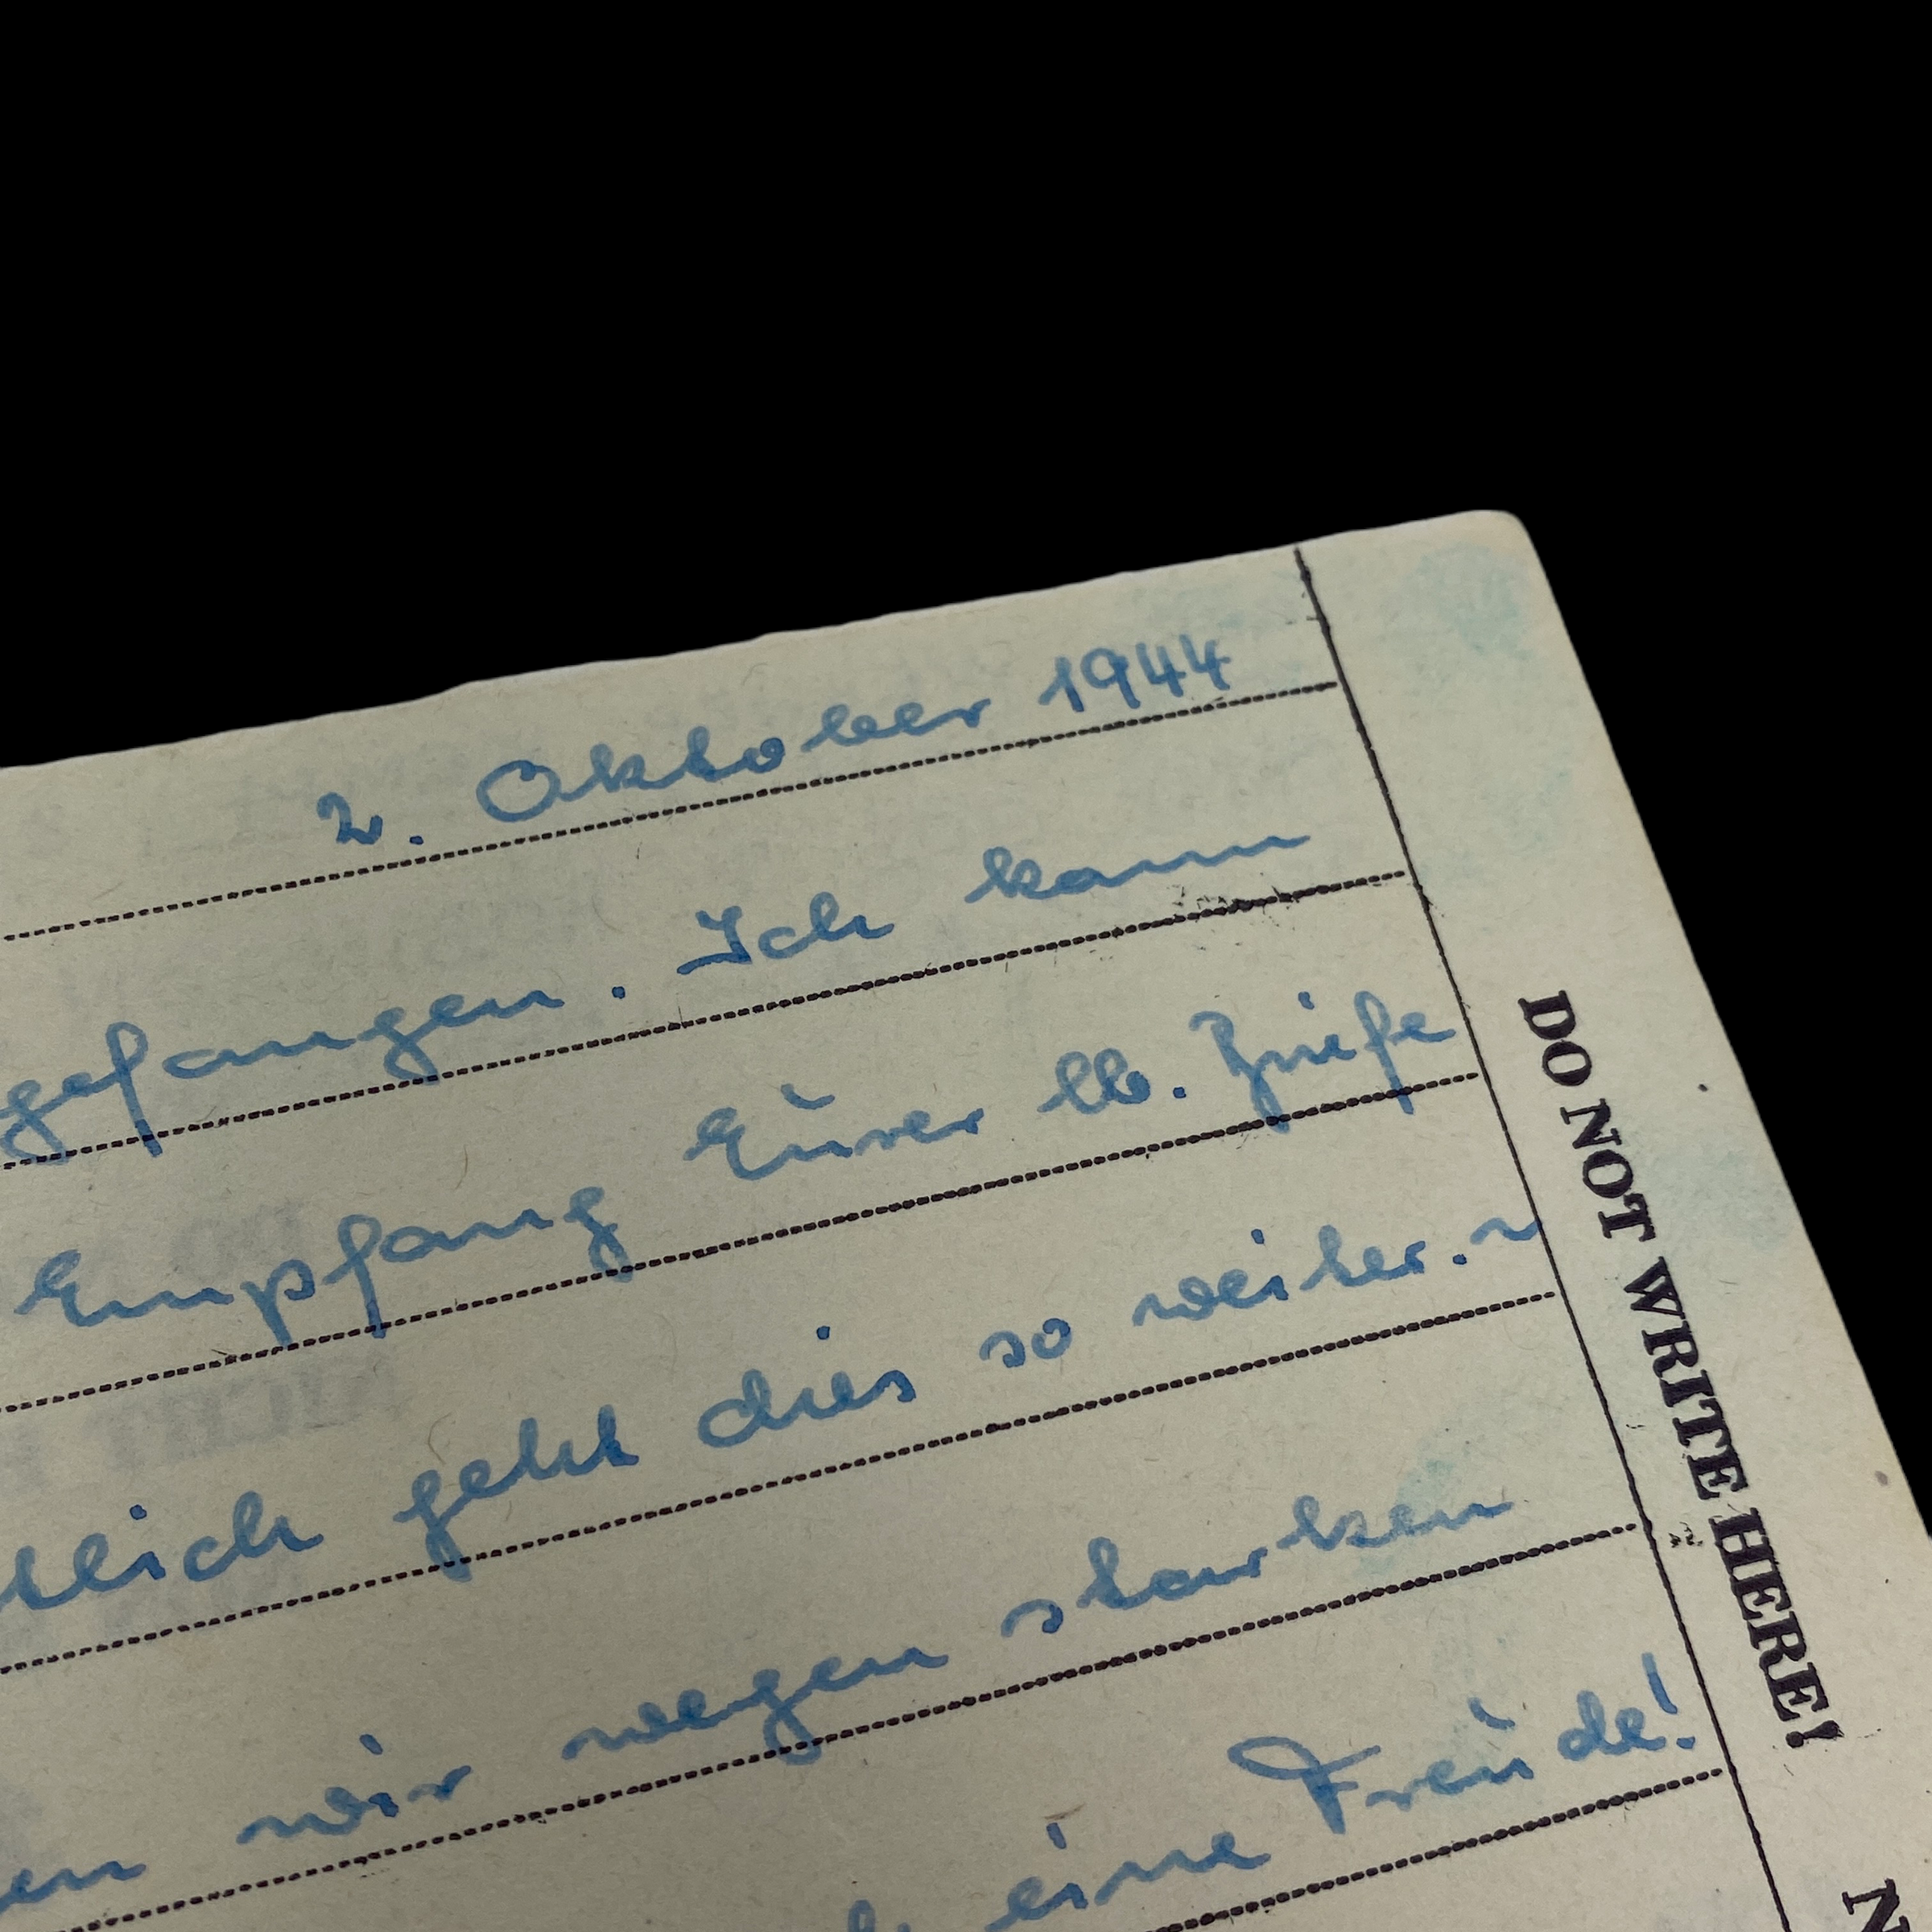 2. Oktober 1944
gefangen. Ich kann
Empfang Eurer lb. Briefe
tlich geht dies so weiter.
en wir wegen starken
eine Freude!
DO NOT WRITE HERE!
N